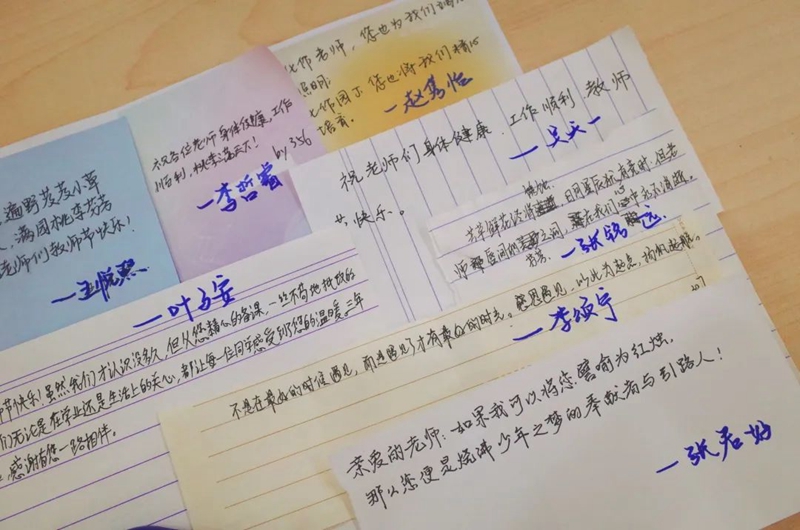 老师，您也为我们
照明；
您也将我们精心
培育。
一赵写怡
祝各位老师身体健康，工作
顺利，桃李满天下！
by 356
一李哲睿
遍野茂茂小草
满园桃李芬芳
老师们教师节快乐！
一王悦熙
祝老师们身体健康，工作顺利 教师
节快乐。
一吴天一
共苹鲜花经得 日月星辰就有交时，但老
师 之间， 在我们心中永不消逝。
芬芳。
一张铭远
一叶子安
节快乐！虽然我们才认识没多久，但从您精心的备课，一丝不苟地批改的
们无论是在学业还是生活上的关心，都让每一位同学感受到了您的温暖，三年
感谢有您一路相伴。
不是在最好的时候遇见，而是遇见了才有最好的时光。感恩遇见，以此为起点，扬帆起航。
207
一李颂宁
亲爱的老师：如果我可以将您譬喻为红烛，
那么您便是烧沸少年之梦的奉献者与引路人！
一张君好